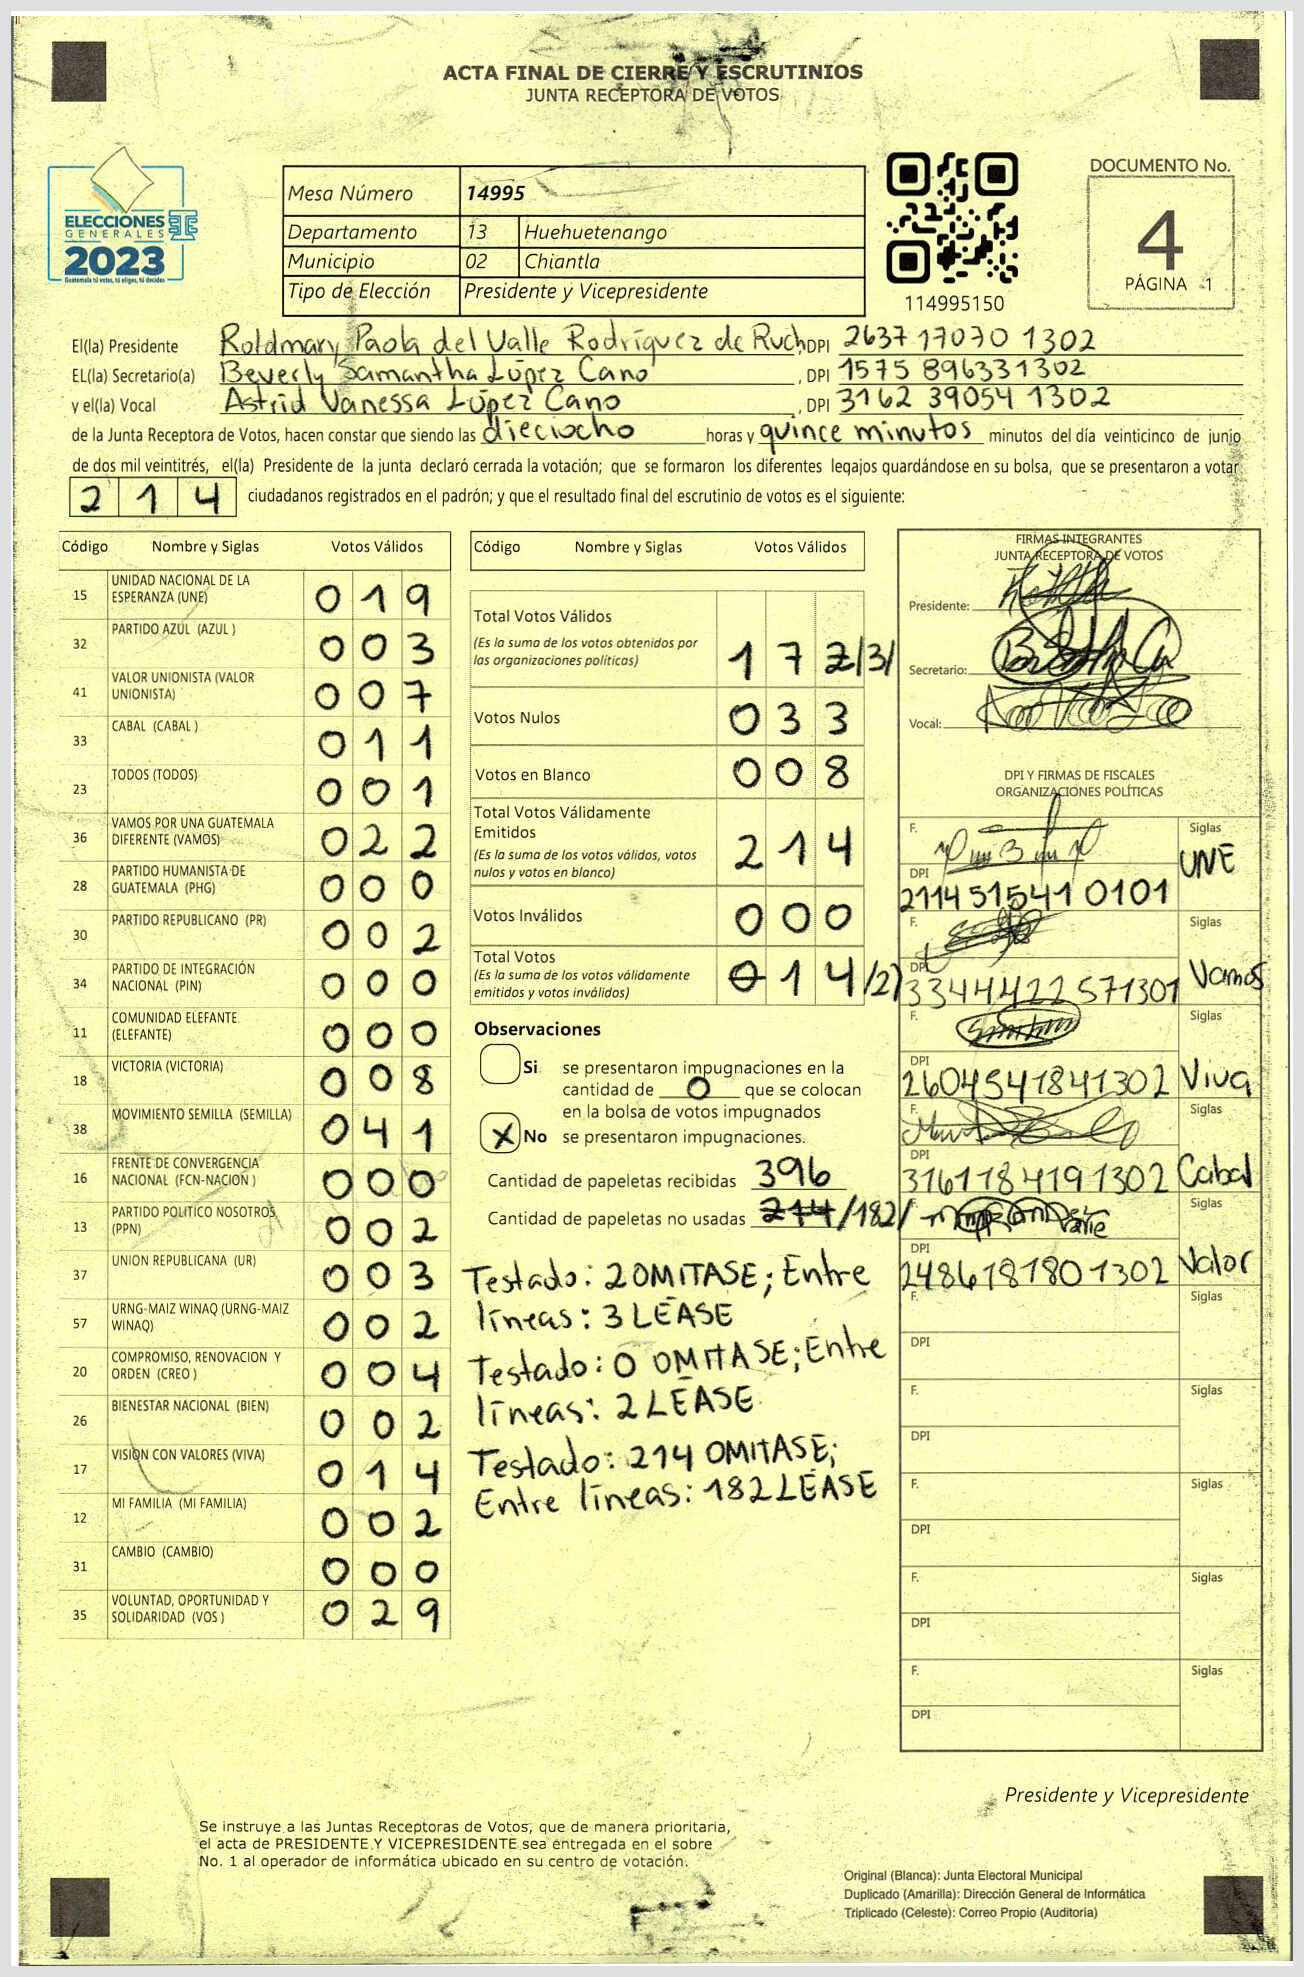 ACTA FINAL DE CIERRE Y ESCRUTINIOS
JUNTA RECEPTORA DE VOTOS
ELECCIONES
GENERALES
2023
Guatemala tú votas, tú eliges, tú decides
Mesa Número 14995
Departamento 13 Huehuetenango
Municipio 02 Chiantla
Tipo de Elección Presidente y Vicepresidente
114995150
DOCUMENTO No.
4
PÁGINA 1
El(la) Presidente Roldmary Paola del Valle Rodríguez de Ruch DPI 2637 17070 1302
EL(la) Secretario(a) Beverly Samantha López Cano , DPI 1575 89633 1302
y el(la) Vocal Astrid Vanessa López Cano , DPI 3162 39054 1302
de la Junta Receptora de Votos, hacen constar que siendo las dieciocho horas y quince minutos minutos del día veinticinco de junio
de dos mil veintitrés, el(la) Presidente de la junta declaró cerrada la votación; que se formaron los diferentes legajos guardándose en su bolsa, que se presentaron a votar
2 1 4 ciudadanos registrados en el padrón; y que el resultado final del escrutinio de votos es el siguiente:
Código Nombre y Siglas Votos Válidos
15 UNIDAD NACIONAL DE LA ESPERANZA (UNE) 0 1 9
32 PARTIDO AZUL (AZUL ) 0 0 3
41 VALOR UNIONISTA (VALOR UNIONISTA) 0 0 7
33 CABAL (CABAL ) 0 1 1
23 TODOS (TODOS) 0 0 1
36 VAMOS POR UNA GUATEMALA DIFERENTE (VAMOS) 0 2 2
28 PARTIDO HUMANISTA DE GUATEMALA (PHG) 0 0 0
30 PARTIDO REPUBLICANO (PR) 0 0 2
34 PARTIDO DE INTEGRACIÓN NACIONAL (PIN) 0 0 0
11 COMUNIDAD ELEFANTE (ELEFANTE) 0 0 0
18 VICTORIA (VICTORIA) 0 0 8
38 MOVIMIENTO SEMILLA (SEMILLA) 0 4 1
16 FRENTE DE CONVERGENCIA NACIONAL (FCN-NACION ) 0 0 0
13 PARTIDO POLITICO NOSOTROS (PPN) 0 0 2
37 UNION REPUBLICANA (UR) 0 0 3
57 URNG-MAIZ WINAQ (URNG-MAIZ WINAQ) 0 0 2
20 COMPROMISO, RENOVACION Y ORDEN (CREO ) 0 0 4
26 BIENESTAR NACIONAL (BIEN) 0 0 2
17 VISION CON VALORES (VIVA) 0 1 4
12 MI FAMILIA (MI FAMILIA) 0 0 2
31 CAMBIO (CAMBIO) 0 0 0
35 VOLUNTAD, OPORTUNIDAD Y SOLIDARIDAD (VOS ) 0 2 9
Código Nombre y Siglas Votos Válidos
Total Votos Válidos
(Es la suma de los votos obtenidos por
las organizaciones políticas) 1 7 2/3/
Votos Nulos 0 3 3
Votos en Blanco 0 0 8
Total Votos Válidamente
Emitidos
(Es la suma de los votos válidos, votos
nulos y votos en blanco) 2 1 4
Votos Inválidos 0 0 0
Total Votos
(Es la suma de los votos válidamente
emitidos y votos inválidos) 0 1 4 /2/
Observaciones
Si se presentaron impugnaciones en la
cantidad de 0 que se colocan
en la bolsa de votos impugnados
X No se presentaron impugnaciones.
Cantidad de papeletas recibidas 396
Cantidad de papeletas no usadas 214/182/
Testado: 2 OMITASE; Entre
líneas: 3 LÉASE
Testado: 0 OMITASE; Entre
líneas: 2 LÉASE
Testado: 214 OMITASE;
Entre líneas: 182 LÉASE
FIRMAS INTEGRANTES
JUNTA RECEPTORA DE VOTOS
Presidente:
Secretario:
Vocal:
DPI Y FIRMAS DE FISCALES
ORGANIZACIONES POLÍTICAS
F. Siglas
DPI 2114 51541 0101 UNE
F. Siglas
DPI 3344422 571301 Vamos
F. Siglas
DPI 2604541841302 Viva
F. Siglas
DPI 3161184191302 Cabal
F. Siglas
DPI 2486181801302 Valor
F. Siglas
DPI
F. Siglas
DPI
F. Siglas
DPI
F. Siglas
DPI
F. Siglas
DPI
Presidente y Vicepresidente
Se instruye a las Juntas Receptoras de Votos, que de manera prioritaria,
el acta de PRESIDENTE Y VICEPRESIDENTE sea entregada en el sobre
No. 1 al operador de informática ubicado en su centro de votación.
Original (Blanca): Junta Electoral Municipal
Duplicado (Amarilla): Dirección General de Informática
Triplicado (Celeste): Correo Propio (Auditoría)